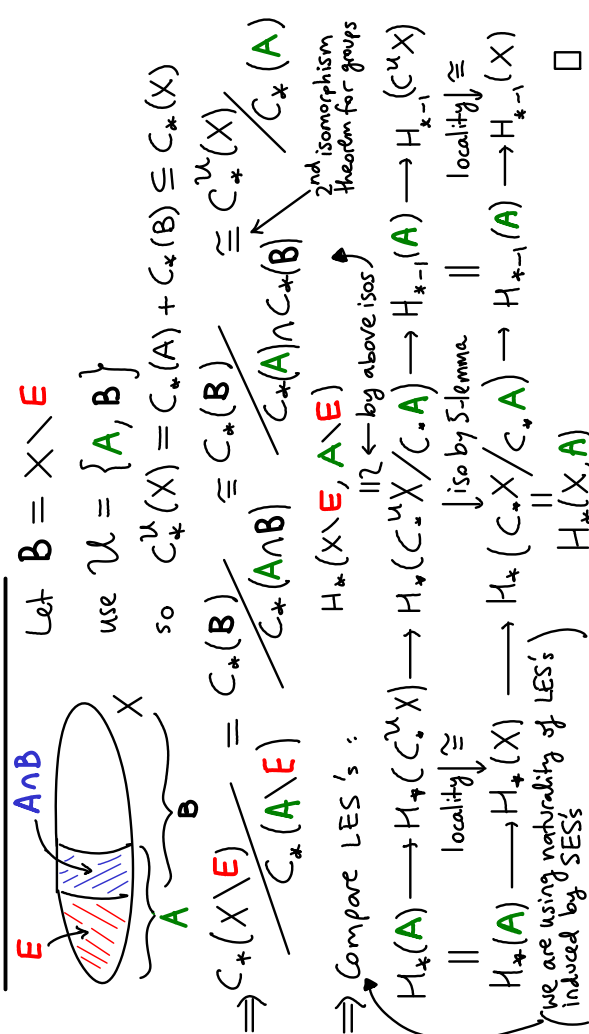 E
A∩B
X
A
B
Let B = X \ E
use 𝒰 = {A, B}
so C_*^𝒰(X) = C_*(A) + C_*(B) ⊆ C_*(X)
⇒ C_*(X\E) / C_*(A\E) = C_*(B) / C_*(A∩B) ≅ C_*(B) / C_*(A)∩C_*(B) ≅ C_*^𝒰(X) / C_*(A)
2nd isomorphism
theorem for groups
⇒ Compare LES's :
H_*(X\E, A\E)
≅ ← by above isos
H_*(A) → H_*(C_*^𝒰 X) → H_*(C_*^𝒰 X / C_* A) → H_{*-1}(A) → H_{*-1}(C^𝒰 X)
|| locality ↓ ≅ ↓ iso by 5-lemma || locality ↓ ≅
H_*(A) → H_*(X) → H_*(C_* X / C_* A) → H_{*-1}(A) → H_{*-1}(X)
||
H_*(X, A)
(we are using naturality of LES's
induced by SES's)
□